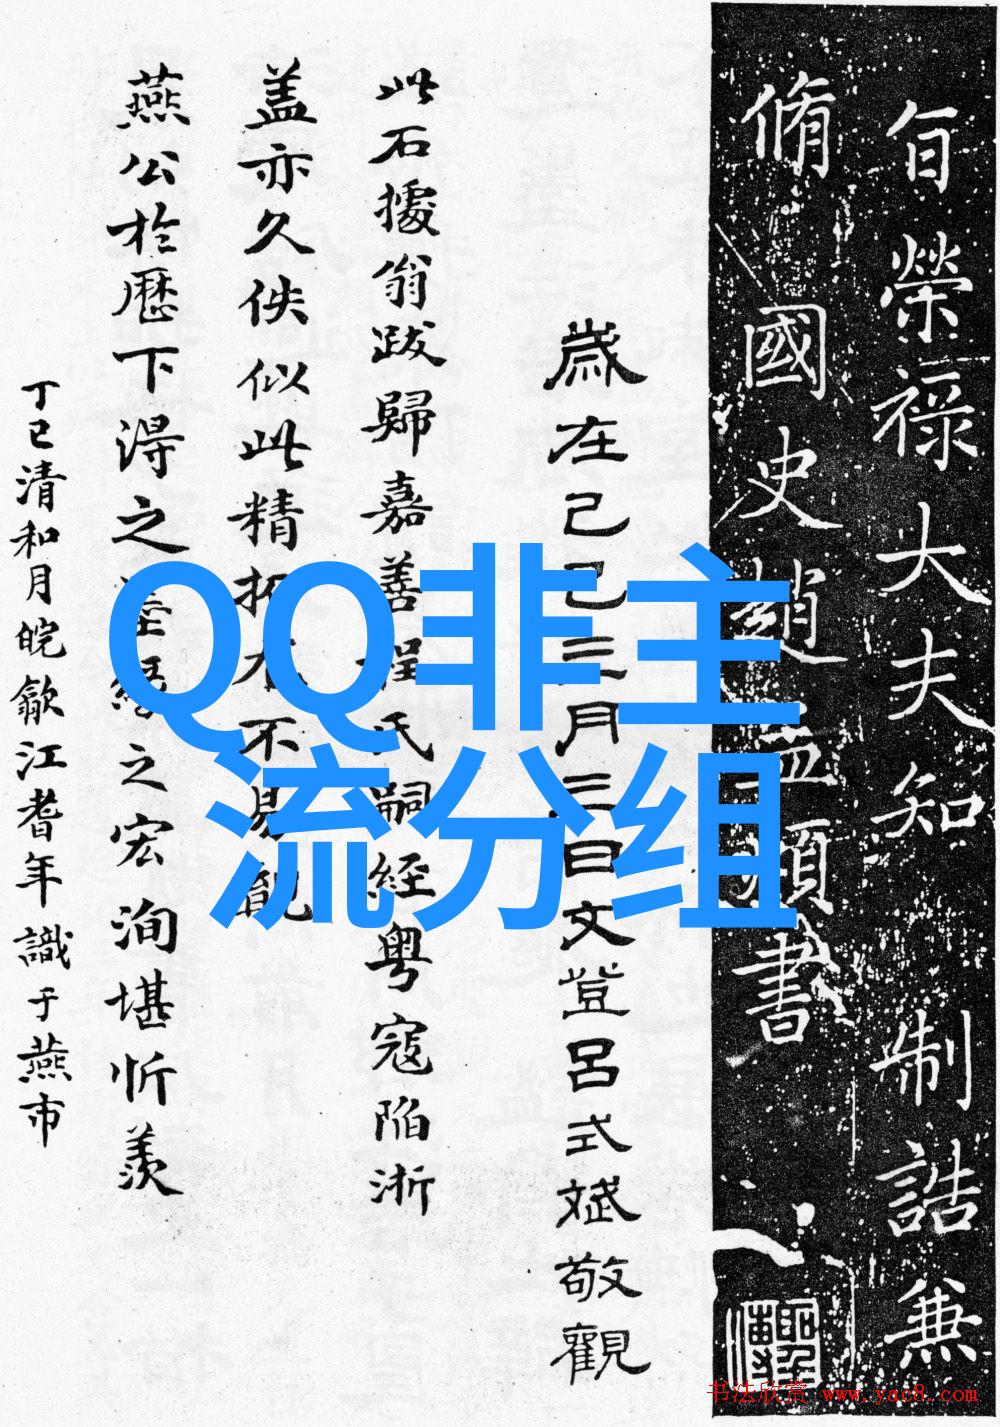 旨榮祿大夫知制誥兼
脩國史趙孟頫書
歲在己巳三月三日文登呂式斌敬觀
此石據翁跋歸嘉善程氏嗣經粵寇陷浙
盖亦久佚似此精拓本不易覯
燕公於歷下得之
之宏洵堪忻羨
丁巳清和月皖歙江耆年識于燕市
QQ非主
流分组
书法欣赏 www.yac8.com